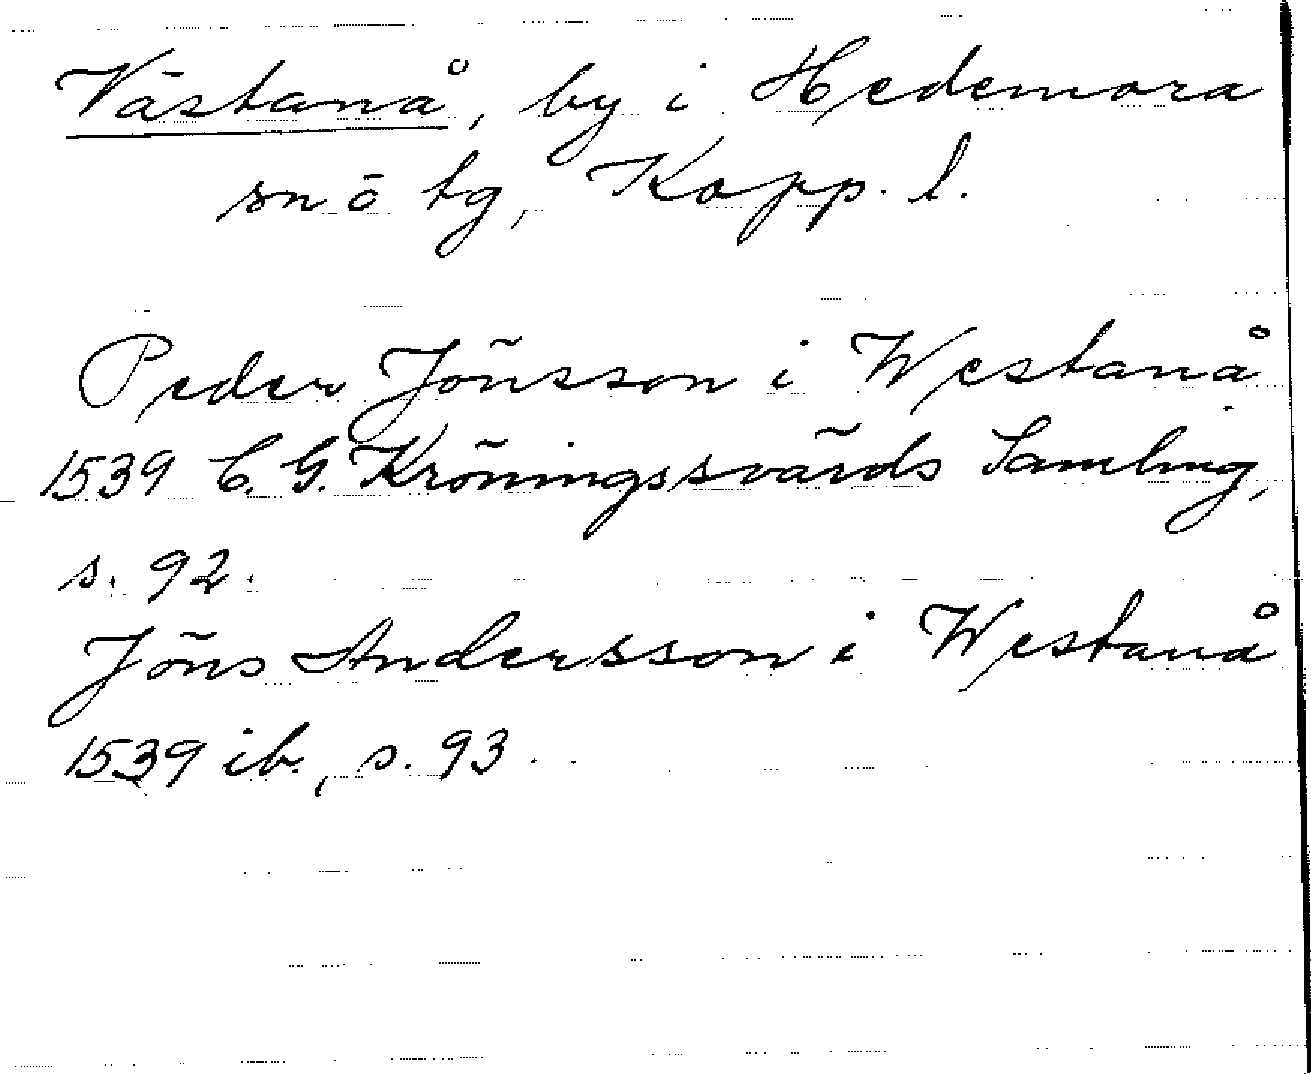 Västanå, by i Hedemora
sn o tg, Kopp. l.
Peder Jönsson i Westanå
1539 C. G. Kröningssvärds Samling,
s. 92.
Jöns Andersson i Westanå
1539 ib., s. 93.